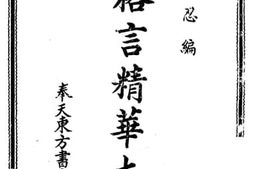 忍編
格言精華
奉天東方書